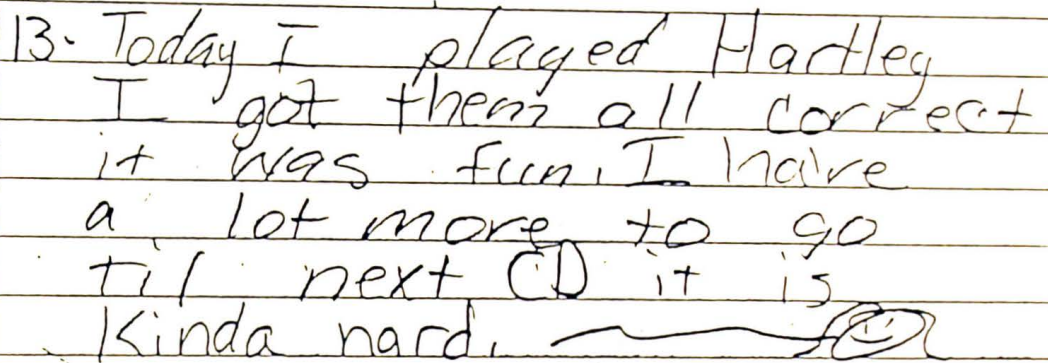 13. Today I played Hartley
I got them all correct
it was fun. I have
a lot more to go
Til next CD it is
Kinda hard.